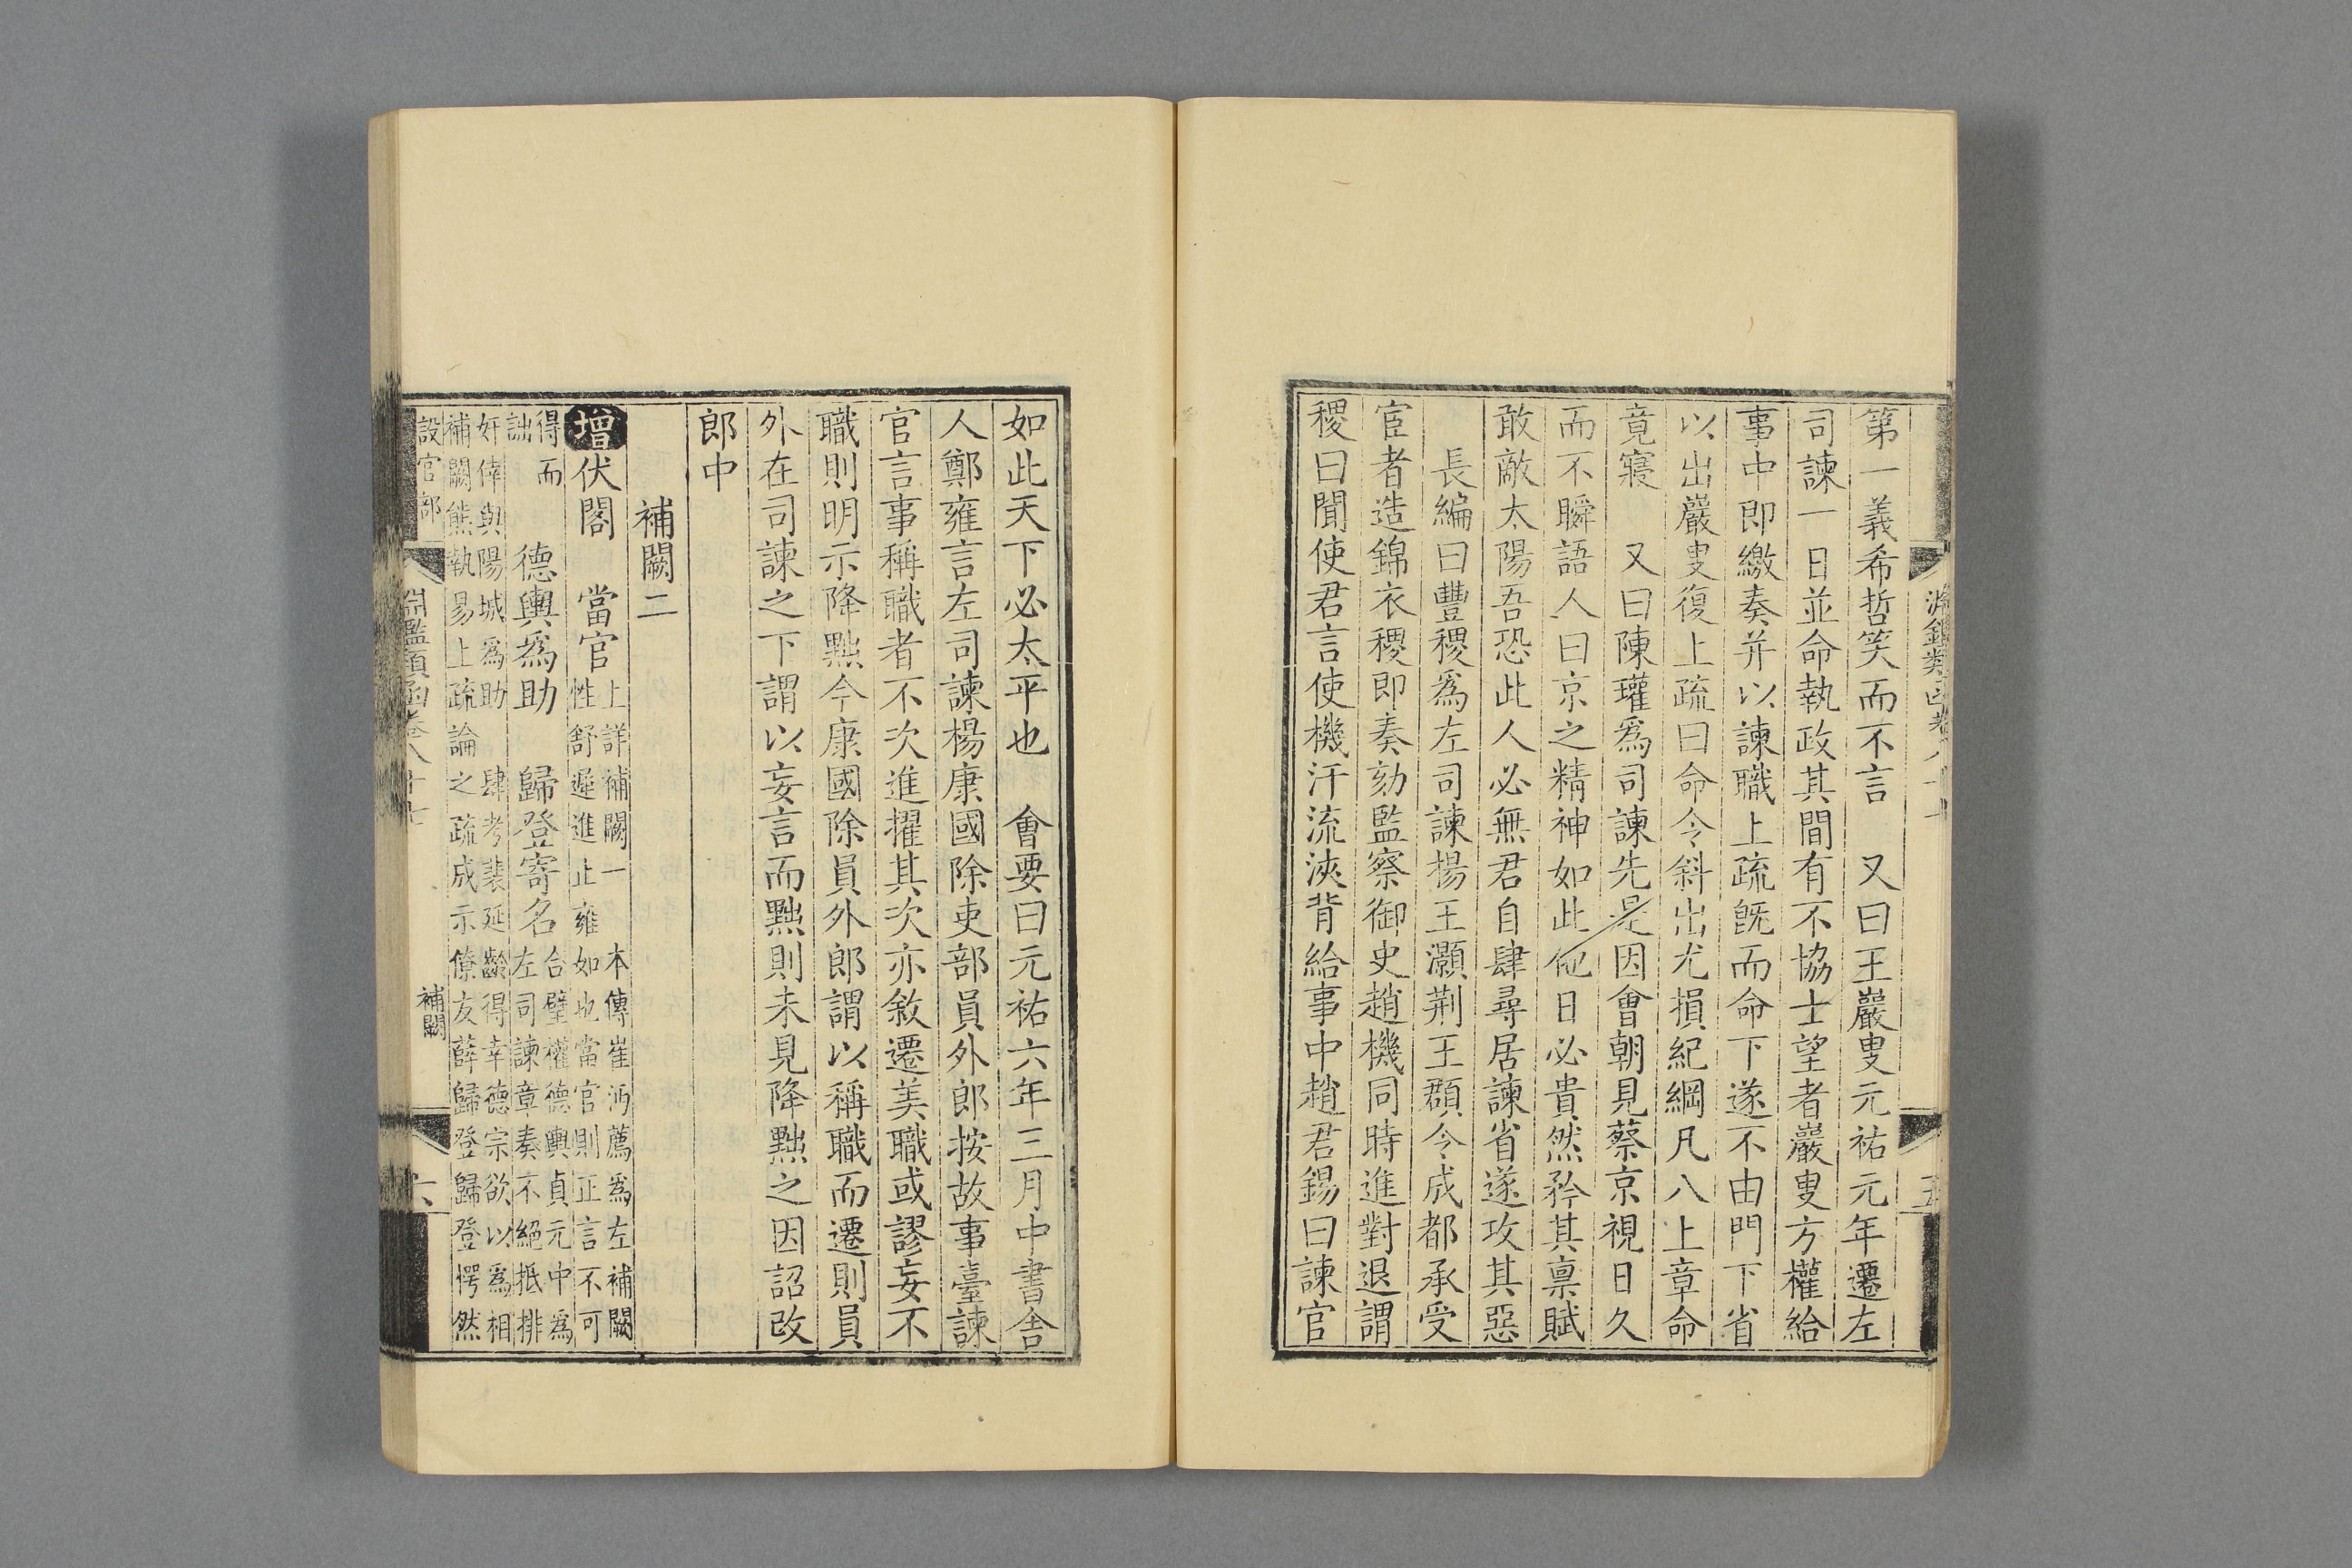 第一義希哲笑而不言　又曰王巖叟元祐元年遷左
司諫一日並命執政其間有不協士望者巖叟方權給
事中即繳奏并以諫職上疏旣而命下遂不由門下省
以出巖叟復上疏曰命令斜出尤損紀綱凡八上章命
竟寢　又曰陳瓘爲司諫先是因會朝見蔡京視日久
而不瞬語人曰京之精神如此他日必貴然矜其禀賦
敢敵太陽吾恐此人必無君自肆尋居諫省遂攻其惡
長編曰豐稷爲左司諫揚王灝荆王頵令成都承受
宦者造錦衣稷即奏劾監察御史趙機同時進對退謂
稷曰聞使君言使機汗流浹背給事中趙君錫曰諫官
如此天下必太平也　會要曰元祐六年三月中書舍
人鄭雍言左司諫楊康國除吏部員外郎按故事臺諫
官言事稱職者不次進擢其次亦敘遷美職或謬妄不
職則明示降黜今康國除員外郎謂以稱職而遷則員
外在司諫之下謂以妄言而黜則未見降黜之因詔改
郎中
補闕二
增伏閣　當官
上詳補闕一　本傳崔沔薦爲左補闕
性舒遲進止雍如也當官則正言不可
得而
詘
德輿爲助　歸登寄名
合璧權德輿貞元中爲
左司諫章奏不絕抵排
奸倖與陽城爲助　肆考裴延齡得幸德宗欲以爲相
補闕熊執易上疏論之疏成示僚友薛歸登歸登愕然
設官部
淵鑑類函卷八十七
補闕
六